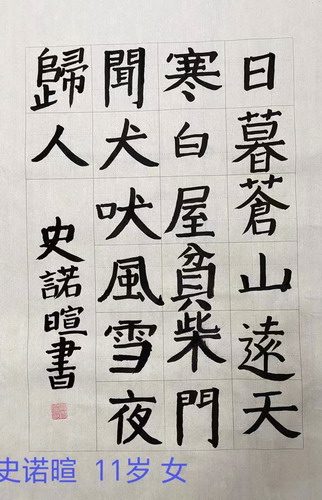 日暮蒼山遠天
寒白屋貧柴門
聞犬吠風雪夜
歸人
史諾暄書
史诺暄 11岁 女